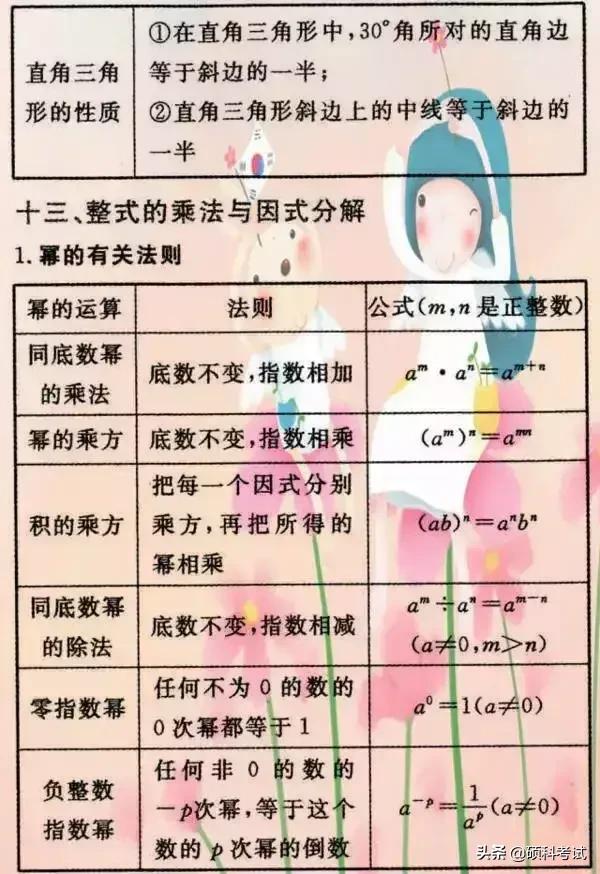 直角三角
形的性质
①在直角三角形中,30°角所对的直角边
等于斜边的一半;
②直角三角形斜边上的中线等于斜边的
一半
十三、整式的乘法与因式分解
1. 幂的有关法则
幂的运算 法则 公式(m,n是正整数)
同底数幂
的乘法
底数不变,指数相加
aᵐ · aⁿ=aᵐ⁺ⁿ
幂的乘方 底数不变,指数相乘 (aᵐ)ⁿ=aᵐⁿ
积的乘方
把每一个因式分别
乘方,再把所得的
幂相乘
(ab)ⁿ=aⁿbⁿ
同底数幂
的除法
底数不变,指数相减
aᵐ÷aⁿ=aᵐ⁻ⁿ
(a≠0,m>n)
零指数幂
任何不为 0 的数的
0 次幂都等于 1
a⁰=1(a≠0)
负整数
指数幂
任何非 0 的数的
-p次幂,等于这个
数的 p 次幂的倒数
a⁻ᵖ=1/aᵖ(a≠0)
头条 @硕科考试